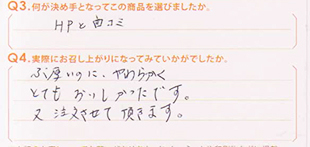 Q3.何が決め手となってこの商品を選びましたか。
HPと口コミ
Q4.実際にお召し上がりになってみていかがでしたか。
ぶ厚いのに、やわらかく
とてもおいしかったです。
又注文させて頂きます。